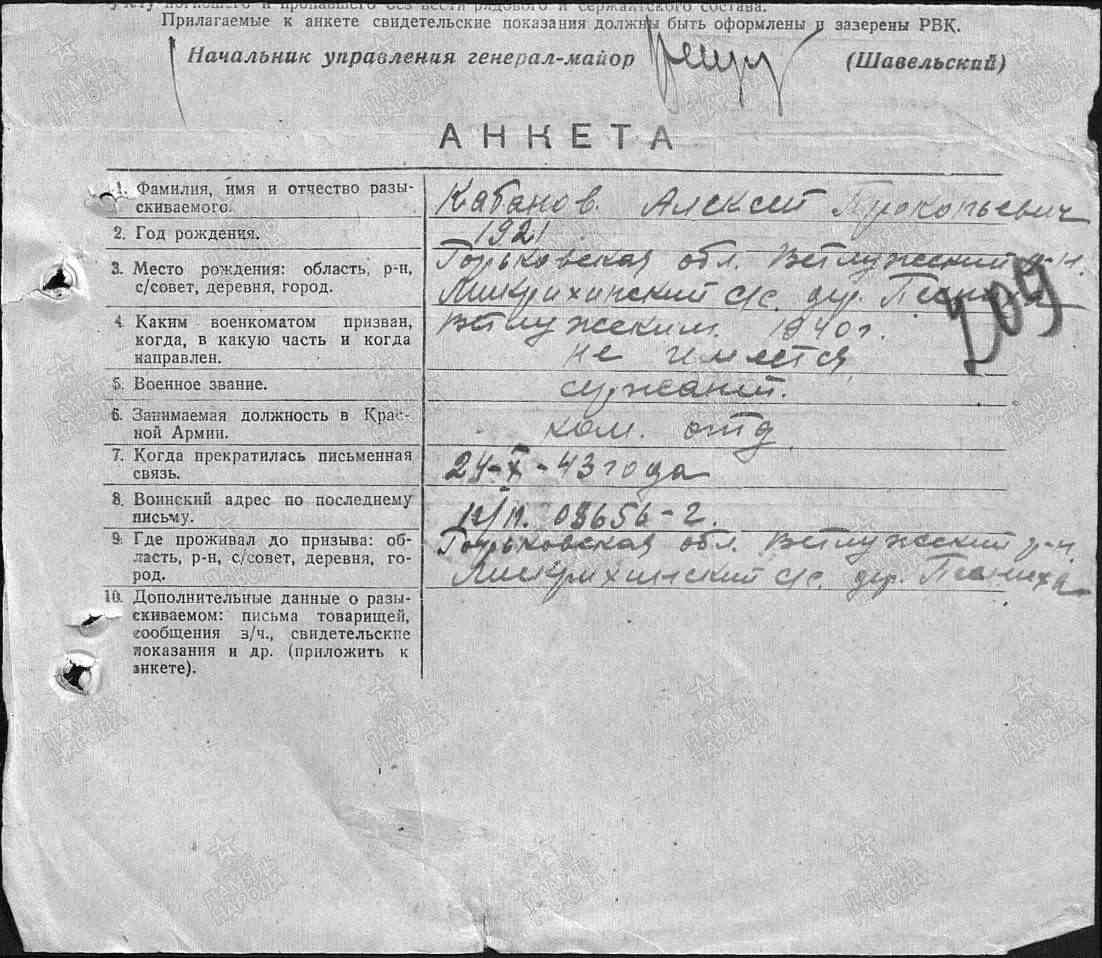 учету погибшего и пропавшего без вести рядового и сержантского состава.
Прилагаемые к анкете свидетельские показания должны быть оформлены и зазерены РВК.
Начальник управления генерал-майор (Шавельский)
АНКЕТА
1. Фамилия, имя и отчество разы-
скиваемого.
Кабанов. Алексей Прокопьевич
2. Год рождения.
1921
3. Место рождения: область, р-н,
с/совет, деревня, город.
Горьковская обл. Ветлужский р-н.
Микрихинский с/с. дер.
209
4. Каким военкоматом призван,
когда, в какую часть и когда
направлен.
Ветлужским. 1940г.
не имеется
5. Военное звание.
сержант.
6. Занимаемая должность в Крас-
ной Армии.
ком. отд
7. Когда прекратилась письменная
связь.
24-X-43 года
8. Воинский адрес по последнему
письму.
п/п. 03656-г.
9. Где проживал до призыва: об-
ласть, р-н, с/совет, деревня, го-
род.
Горьковская обл. Ветлужский р-н.
Микрихинский с/с. дер.
10. Дополнительные данные о разы-
скиваемом: письма товарищей,
сообщения в/ч., свидетельские
показания и др. (приложить к
анкете).
ПАМЯТЬ НАРОДА